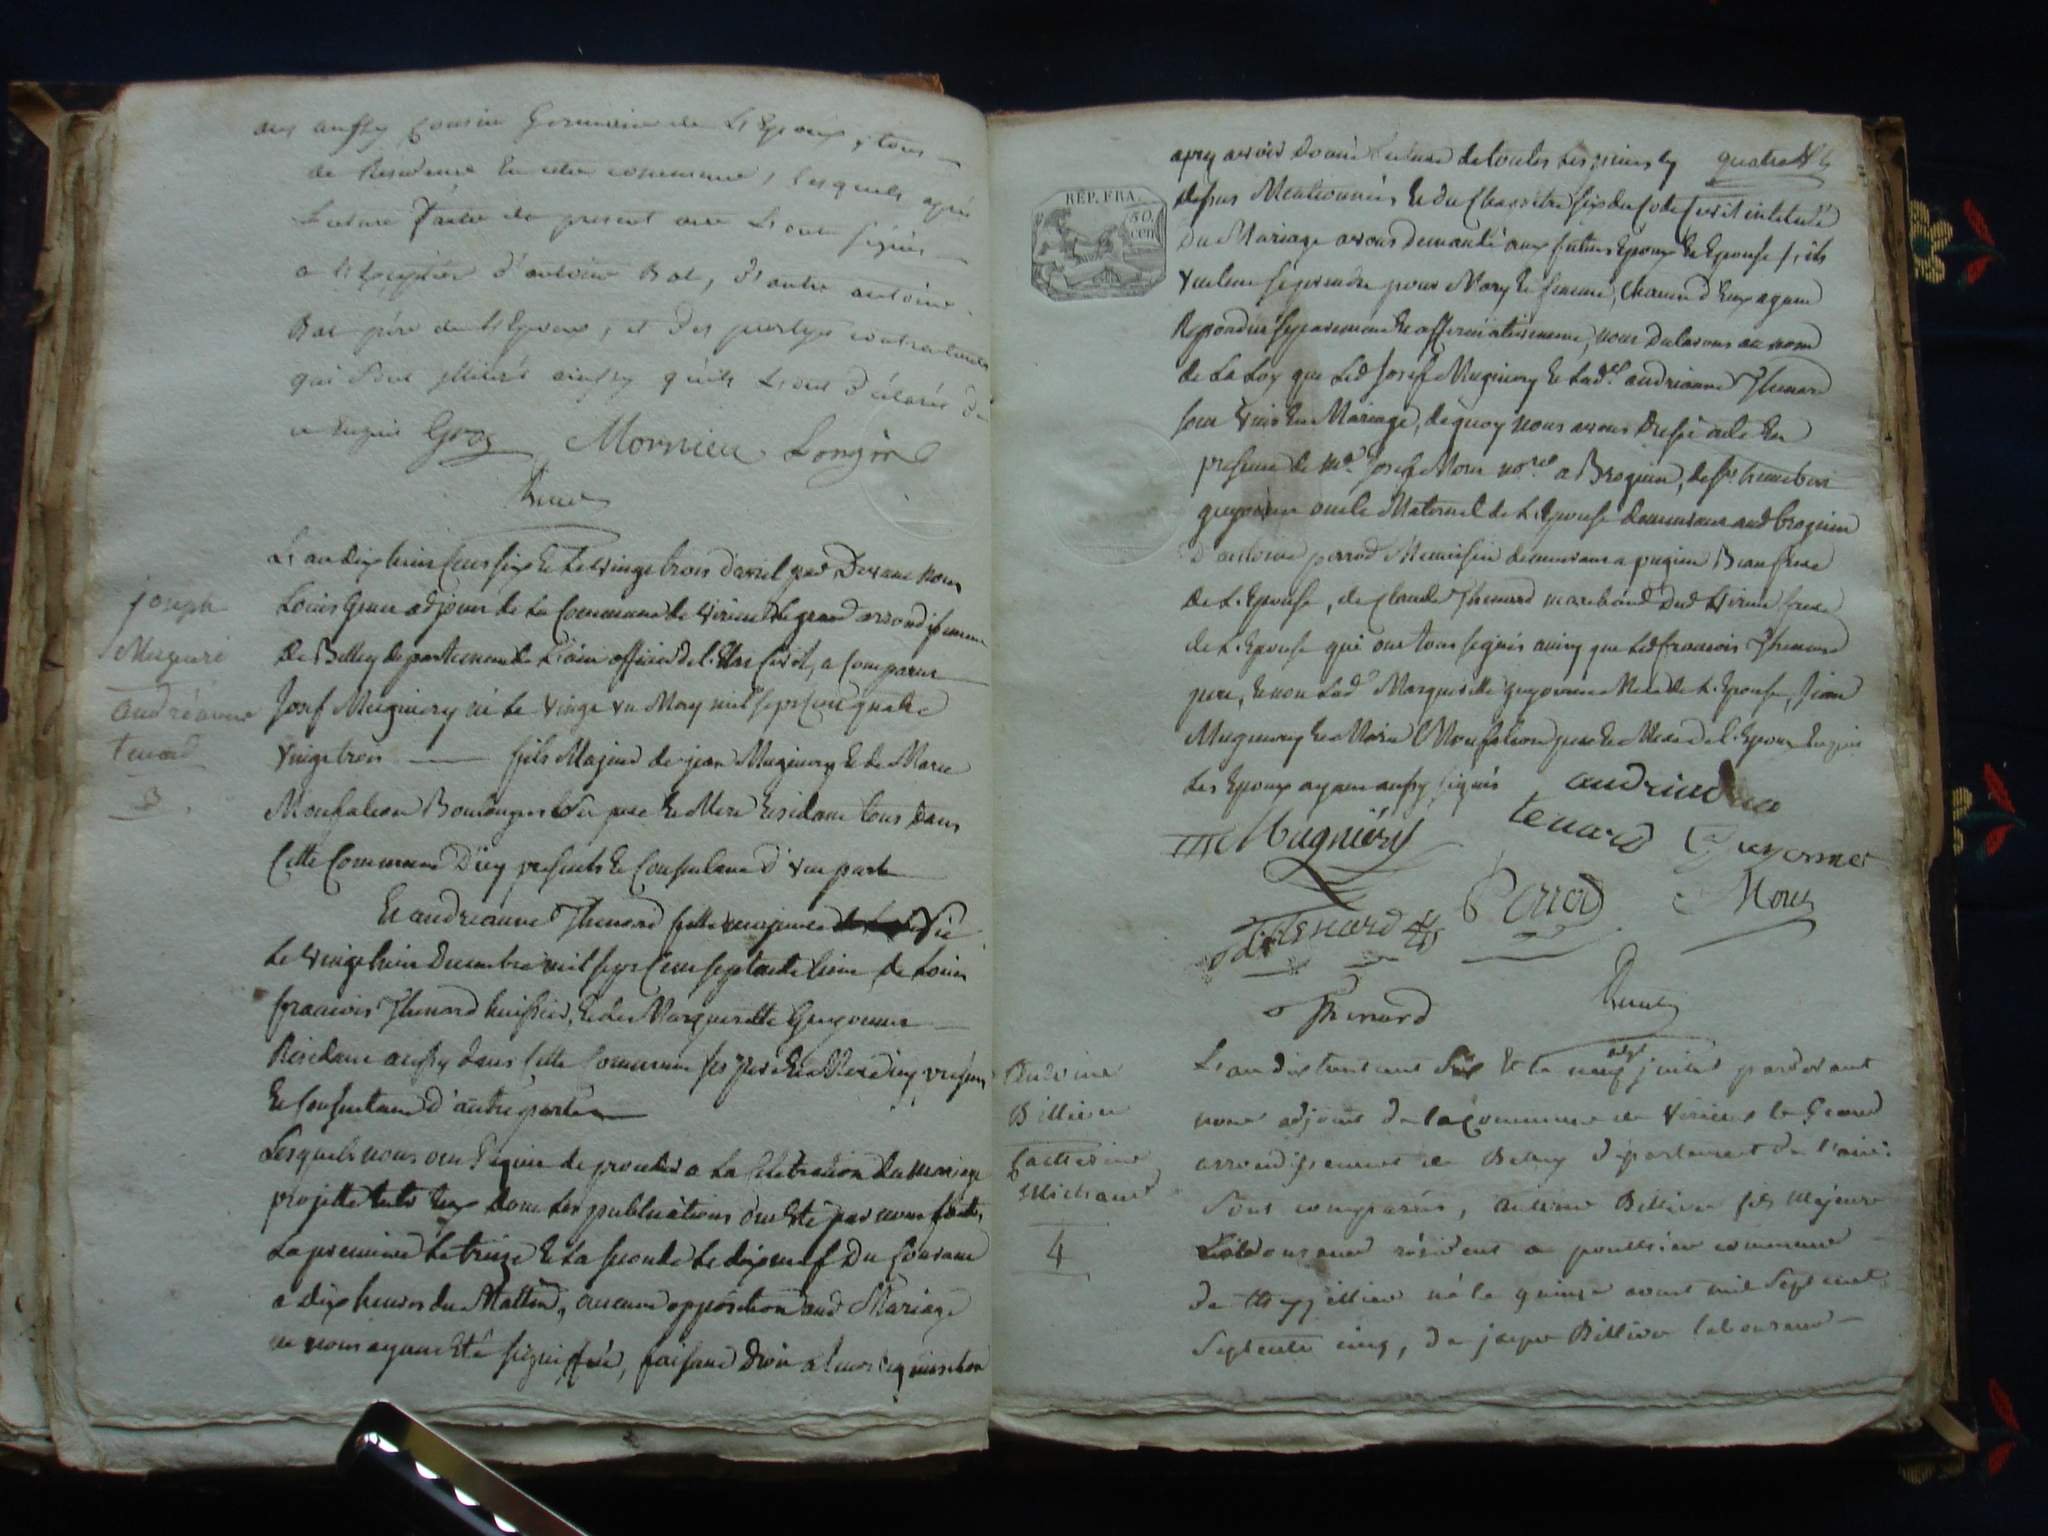 aussy cousin Germain de L'Epoux, tous
de Residence En cette commune, lesquels après
Lecture faite du present acte Lont signés
a L'Exception d'antoine Bal, d'autre antoine
Bal père de L'Epoux, et des partyes contractantes
qui Sont illitéré ainssy qu'ils L'ont déclarés de
ce Enquis Gros Mornieu Longin
L'an dix huit Cent six Et Le vingt trois d'avril par Devant Nous
Louis adjoint de La Commune de Virieu Le grand arrondissement
de Belley departement de L'ain officier de l'Etat Civil, a Comparu
Josef Mugniery né Le vingt un May mil sept Cent quatre
vingt trois fils Majeur de jean Mugniery Et de Marie
Monfalcon Boulangers Ses pere Et Mere Residant tous Dans
Cette Commune D'icy presents Et Consentant d'une part
Et andrianne Thenard fille majeure Née
Le vingt huit Decembre mil sept Cent septante huit de Louis
francois Thenard huissier, Et de Marguerite Guyonnet
Residant aussy dans Cette Commune ses Pere Et Mere icy présents
Et Consentant d'autre part
Lesquels nous ont Requis de proceder a La Celebration du Mariage
projetté Entr'Eux Dont Les publications ont Eté par nous faites
La premiere Le treize Et La seconde Le dix neuf Du Courant
a dix heures du Mattin, aucune opposition aud Mariage
ne nous ayant Eté signiffiée, faisant droit a leur requisition
Joseph
Mugnié
andréanne
tenard
3
apres avoir donné Lecture de toutes Les pieces cy quatre
dessus Mentionnées Et du Chapitre six du Code Civil intitulé
REP. FRA.
50. cen
du Mariage avons demandé aux futurs Epoux Et Epouse s'ils
veulent se prendre pour Mary Et femme, Chacun d'Eux ayant
Repondu séparement Et affirmativement, nous declarons au nom
de La Loy que Led Josef Mugniery Et Lade andrianne Thenard
sont unis En Mariage, de quoy nous avons Dressé acte En
presence de Me Josef Mour nore a Brognin,
guyonnet oncle Maternel de L'Epouse demeurant aud brognin
d'antoine perrod demeurant a pugieu Beaufrere
de L'Epouse, de Claude Thenard marchand dud Virieu frere
de L'Epouse qui ont tous signés ainsy que Led francois Thenard
pere, Et non Lade Marguerite guyonnet Mere de L'Epouse, Jean
Mugniery Et Marie Monfalcon pere Et Mere de l'Epoux Enquis
Les Epoux ayant aussy signés andrianne
Mugniéry tenard Guyonnet
Thenard Perrod Mour
Thenard
L'an dix huit cent Six Et le neuf juillet pardevant
nous adjoint de la Commune de Virieu le Grand
arrondissement de Belley département de l'ain.
Sont comparus, antoine Billion fils Majeur
Laboureur résident a commune
de né le quinze aout mil Sept cent
Septente cinq, de jaque Billion laboureur
Antoine
Billion
Catherine
Michaud
4